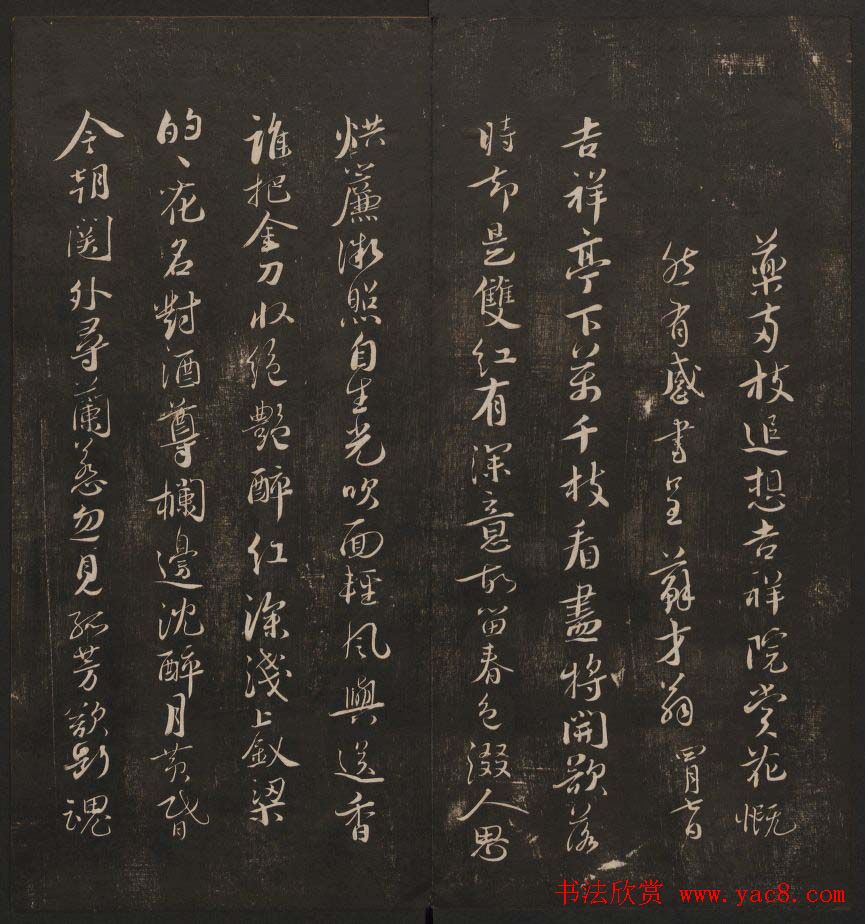 藥兩枝追想吉祥院赏花慨
然有感書呈蘇才翁四月七日
吉祥亭下萬千枝看盡將開欲落
時却是雙红有深意故留春色綴人思
烘簾微照自生光吹面輕风與送香
誰把金刀收绝艷醉红深淺上釵梁
的〻花名對酒尊欄邊沈醉月黄昏
今朝関外尋蘭蕙忽見孤芳欲断魂
书法欣赏 www.yac8.com